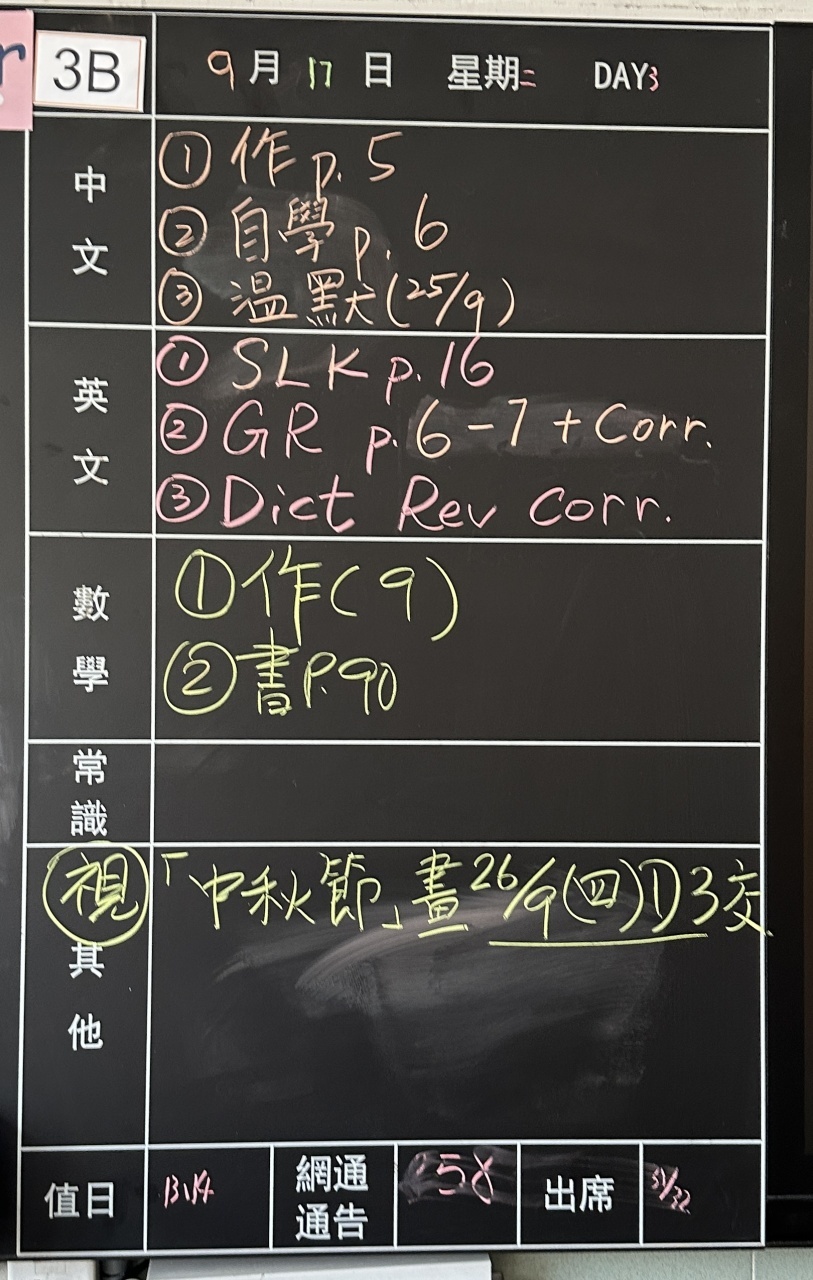 3B
9月17日 星期二 DAY3
中文
① 作 p. 5
② 自學 p. 6
③ 溫默(25/9)
英文
① SLK p. 16
② GR p. 6-7 + Corr.
③ Dict Rev Corr.
數學
① 作(9)
② 書 P. 90
常識
視 「中秋節」畫 26/9(四)D3交
其他
值日 13,14 網通通告 58 出席 31/32